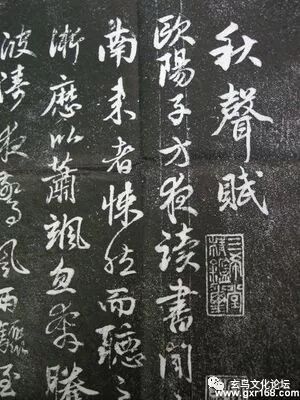 秋聲賦
歐陽子方夜讀書聞
南来者悚然而聽之
淅瀝以蕭颯忽奔騰
波濤夜驚風雨驟至
三希堂精鑑璽
玄鸟文化论坛
www.gxr168.com